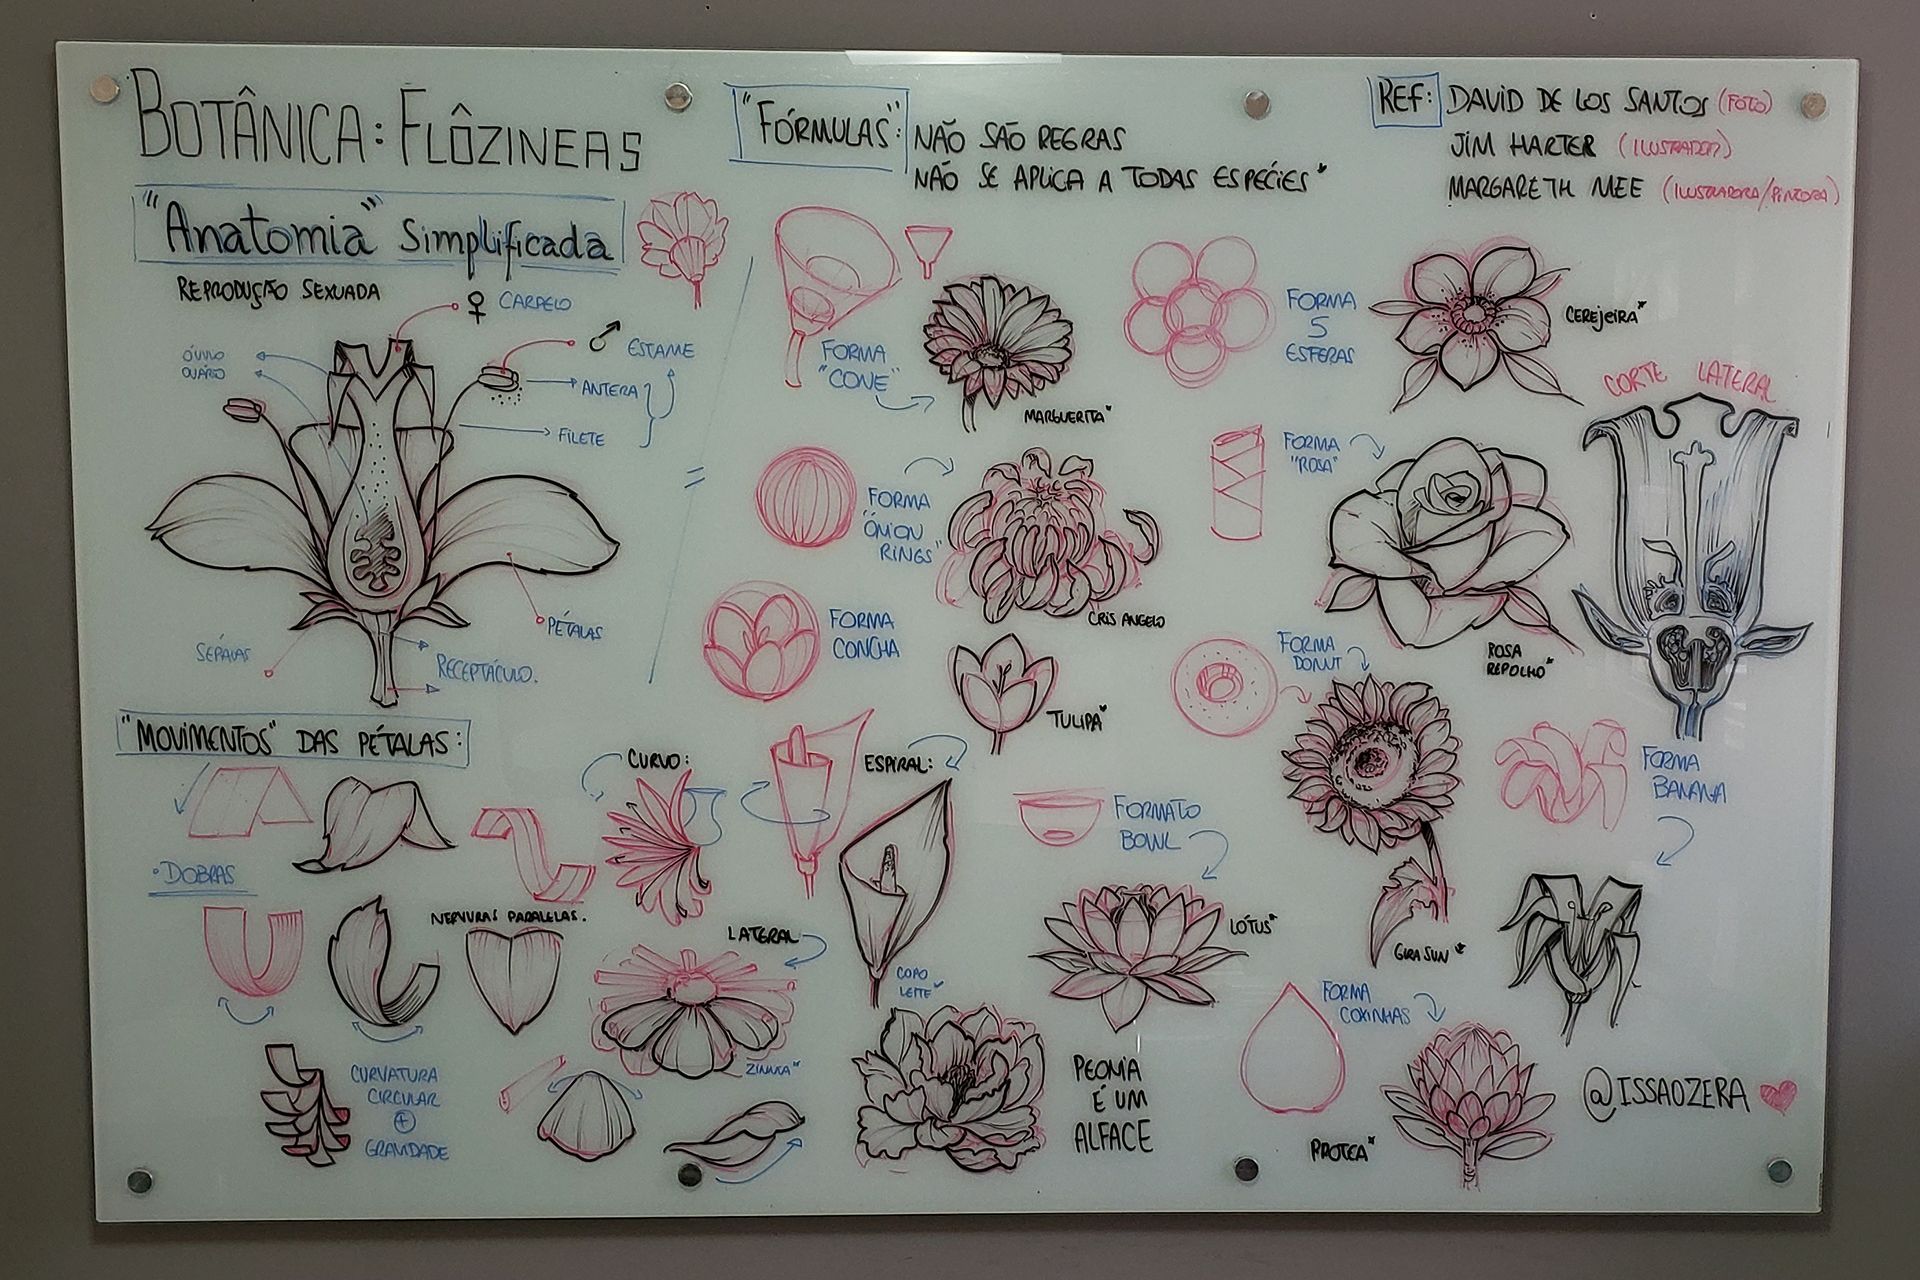 BOTÂNICA: FLÔZINEAS
"Anatomia" Simplificada
REPRODUÇÃO SEXUADA
♀ CARPELO
♂ ESTAME
ÓVULO
OVÁRIO
ANTERA
FILETE
PÉTALAS
SÉPALAS
RECEPTÁCULO.
"MOVIMENTOS" DAS PÉTALAS:
• DOBRAS
NERVURAS PARALELAS.
CURVO:
ESPIRAL:
COPO
LEITE*
LATERAL
ZINNIA*
CURVATURA
CIRCULAR
+
GRAVIDADE
"FÓRMULAS":
NÃO SÃO REGRAS
NÃO SE APLICA A TODAS ESPÉCIES*
REF: DAVID DE LOS SANTOS (FOTO)
JIM HARTER (ILUSTRADOR)
MARGARETH MEE (ILUSTRADORA/PINTORA)
FORMA
"CONE"
MARGUERITA*
FORMA
5
ESFERAS
CEREJEIRA*
FORMA
"ONION
RINGS"
CRIS ANGELO
FORMA
"ROSA"
ROSA
REPOLHO*
CORTE LATERAL
FORMA
CONCHA
TULIPA*
FORMA
DONUT
GIRASUN*
FORMA
BANANA
FORMATO
BOWL
LÓTUS*
FORMA
COXINHAS
PROTEA*
PEONIA
É UM
ALFACE
@ISSAOZERA